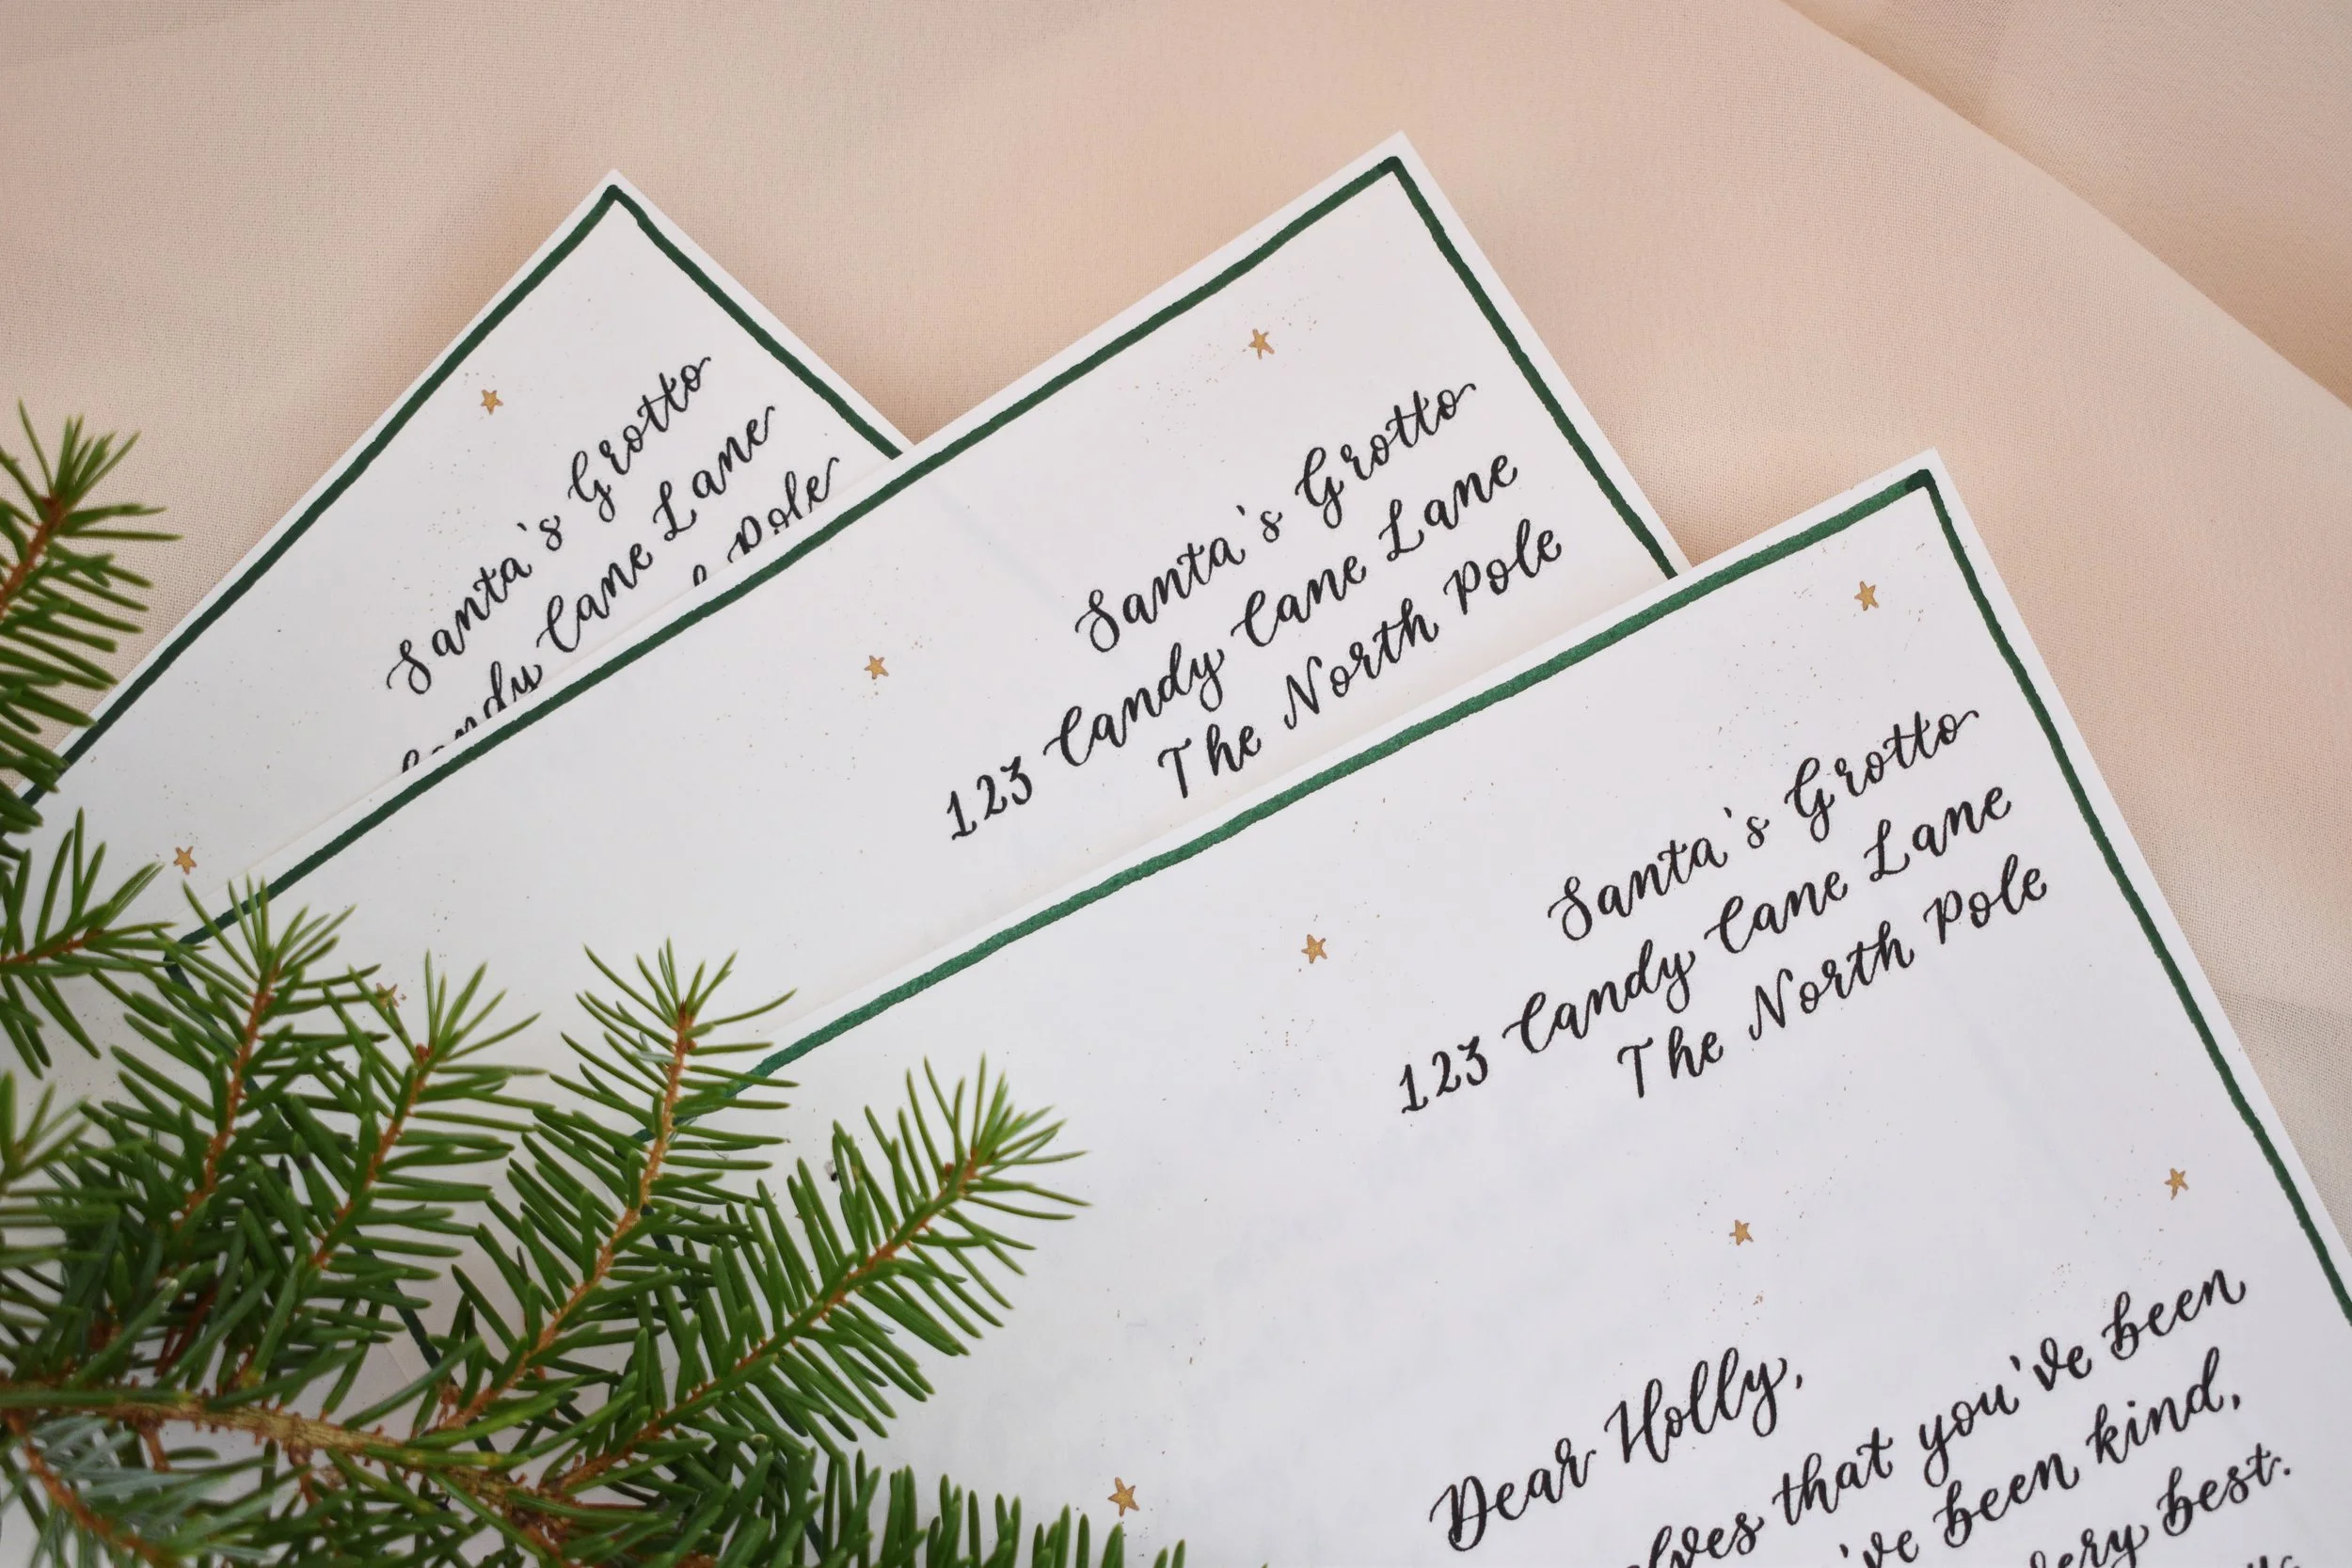 Santa's Grotto
Candy Cane Lane
Pole
Santa's Grotto
123 Candy Cane Lane
The North Pole
Santa's Grotto
123 Candy Cane Lane
The North Pole
Dear Holly,
that you've been
've been kind,
best.